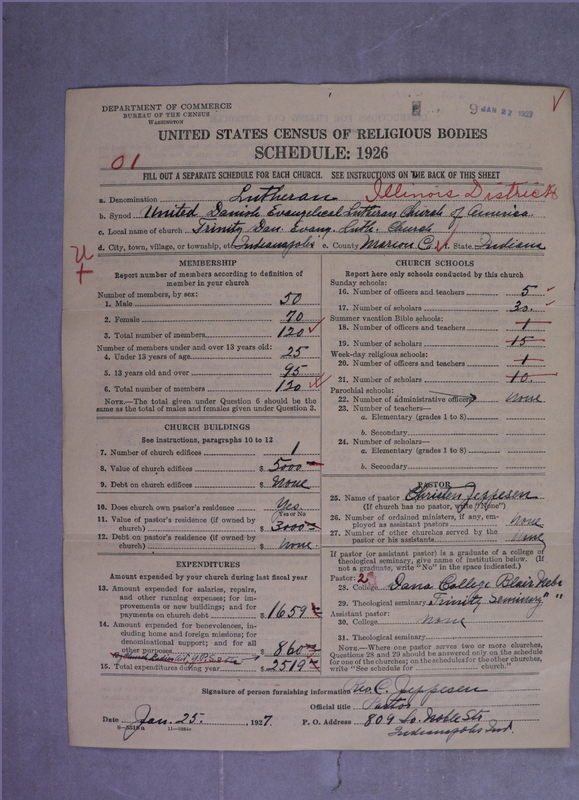 DEPARTMENT OF COMMERCE
BUREAU OF THE CENSUS
WASHINGTON
9 JAN 27 1927
UNITED STATES CENSUS OF RELIGIOUS BODIES
SCHEDULE: 1926
01
FILL OUT A SEPARATE SCHEDULE FOR EACH CHURCH. SEE INSTRUCTIONS ON THE BACK OF THIS SHEET
a. Denomination Lutheran Illinois District
b. Synod United Danish Evangelical Lutheran Church of America
c. Local name of church Trinity Dan. Evang. Luth. Church
d. City, town, village, or township, etc. Indianapolis e. County Marion Co. f. State Indiana
MEMBERSHIP
Report number of members according to definition of
member in your church
Number of members, by sex:
1. Male 50
2. Female 70
3. Total number of members 120
Number of members under and over 13 years old:
4. Under 13 years of age 25
5. 13 years old and over 95
6. Total number of members 120
NOTE.—The total given under Question 6 should be the
same as the total of males and females given under Question 3.
CHURCH BUILDINGS
See instructions, paragraphs 10 to 12
7. Number of church edifices 1
8. Value of church edifices $ 5000
9. Debt on church edifices $ None
10. Does church own pastor's residence Yes
Yes or No
11. Value of pastor's residence (if owned by
church) $ 3000
12. Debt on pastor's residence (if owned by
church) $ none
EXPENDITURES
Amount expended by your church during last fiscal year
13. Amount expended for salaries, repairs,
and other running expense; for im-
provements or new buildings; and for
payments on church debt $ 1659
14. Amount expended for benevolences, in-
cluding home and foreign missions; for
denominational support; and for all
other purposes $ 860
15. Total expenditures during year $ 2519
CHURCH SCHOOLS
Report here only schools conducted by this church
Sunday schools:
16. Number of officers and teachers 5
17. Number of scholars 30
Summer vacation Bible schools:
18. Number of officers and teachers 1
19. Number of scholars 15
Week-day religious schools:
20. Number of officers and teachers 1
21. Number of scholars 10
Parochial schools:
22. Number of administrative officers none
23. Number of teachers—
a. Elementary (grades 1 to 8)
b. Secondary
24. Number of scholars—
a. Elementary (grades 1 to 8)
b. Secondary
PASTOR
25. Name of pastor Christen Jeppesen
(If church has no pastor, write "None")
26. Number of ordained ministers, if any, em-
ployed as assistant pastors none
27. Number of other churches served by the
pastor or his assistants none
If pastor (or assistant pastor) is a graduate of a college or
theological seminary, give name of institution below. (If
not a graduate, write "No" in the space indicated.)
Pastor: 2
28. College Dana College Blair Nebr
29. Theological seminary Trinity Seminary " "
Assistant pastor:
30. College none
31. Theological seminary
NOTE.—Where one pastor serves two or more churches,
Questions 28 and 29 should be answered only on the schedule
for one of the churches; on the schedules for the other churches,
write "See schedule for church."
Signature of person furnishing information C. Jeppesen
Official title Pastor
Date Jan. 25. , 1927. P. O. Address 809 So. Noble Str
Indianapolis Ind.